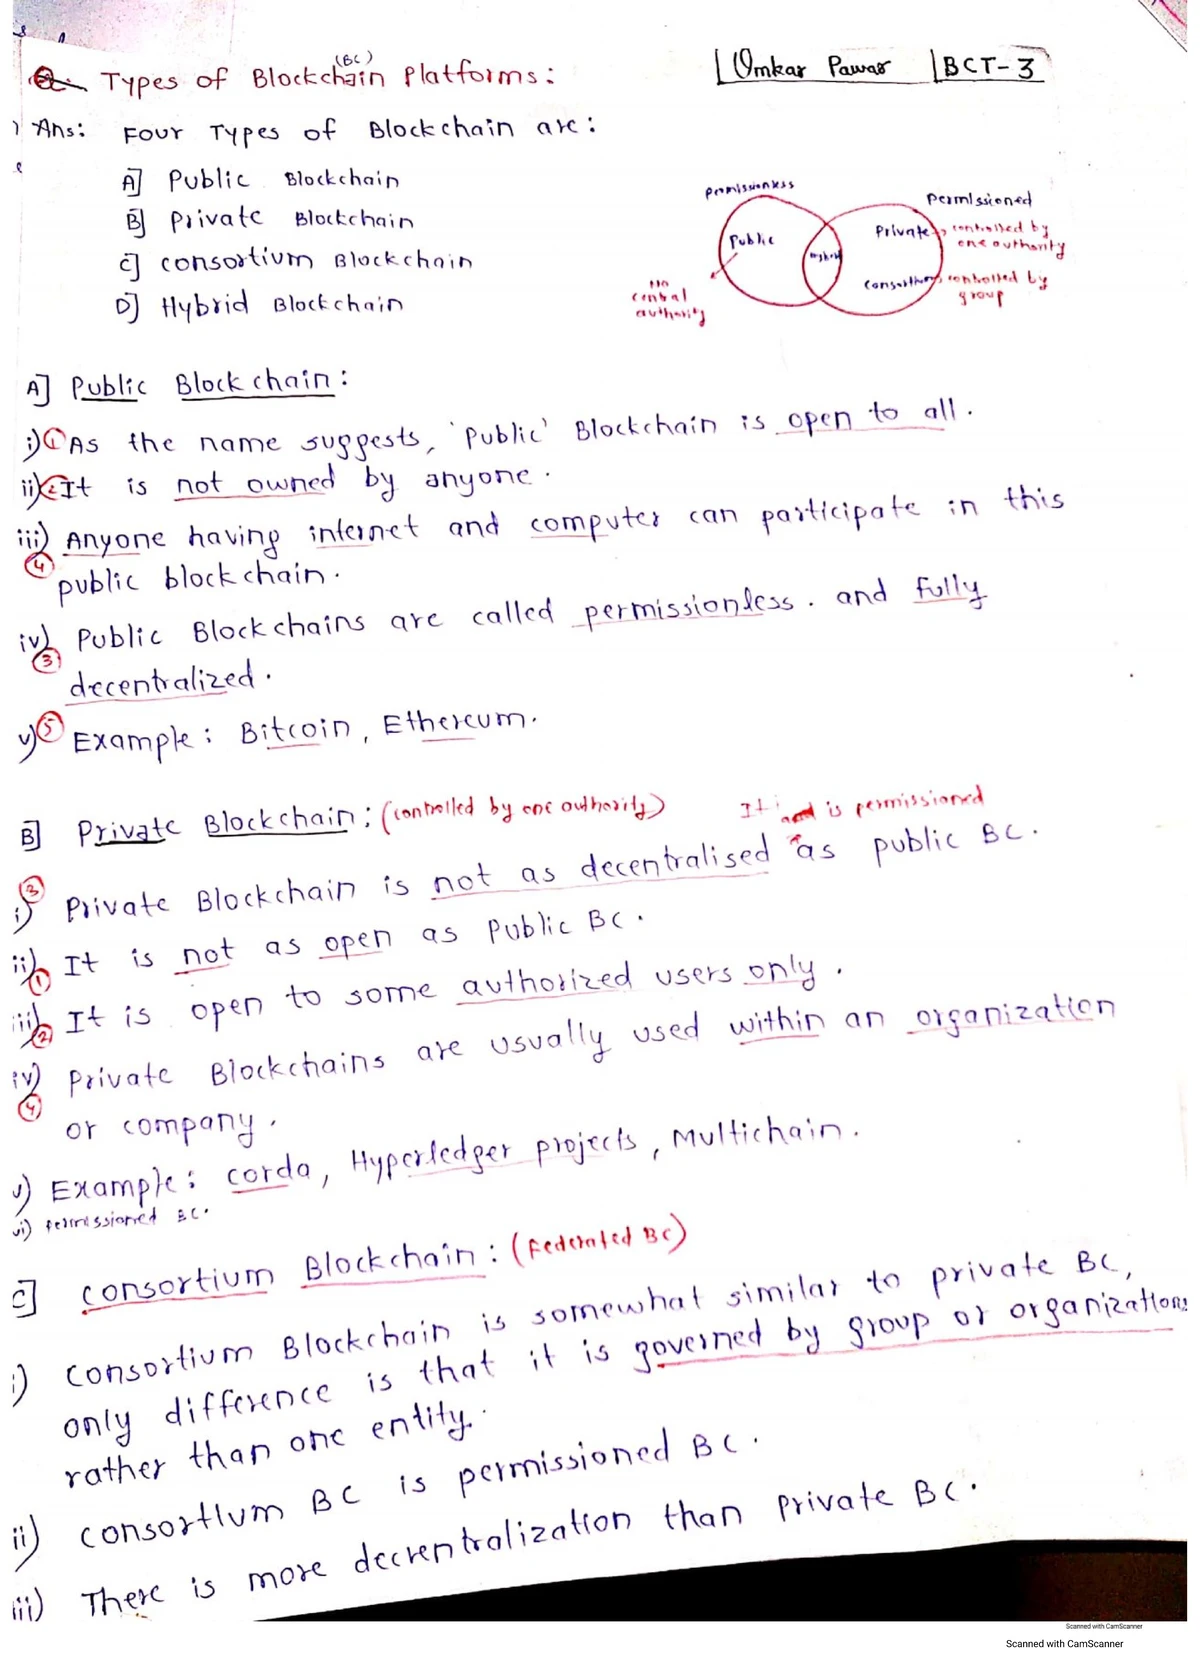 (BC)
Types of Blockchain Platforms:
Omkar Pawar | BCT-3
Ans: Four Types of Blockchain are:
A] Public Blockchain
B] Private Blockchain
C] consortium Blockchain
D] Hybrid Blockchain
permissionless
Permissioned
Public
Private
controlled by
one authority
Hybrid
Consortium
controlled by
group
No
central
authority
A] Public Blockchain:
i) 1 As the name suggests, 'Public' Blockchain is open to all.
ii) 2 It is not owned by anyone.
iii) Anyone having internet and computer can participate in this
4
public blockchain.
iv) Public Blockchains are called permissionless. and fully
3
decentralized.
v) 5 Example: Bitcoin, Ethereum.
B] Private Blockchain: (controlled by one authority)
It is permissioned
3
i) Private Blockchain is not as decentralised as public BC.
ii) It is not as open as Public BC.
1
iii) It is open to some authorized users only.
2
iv) Private Blockchains are usually used within an organization
4
or company.
v) Example: corda, Hyperledger projects, Multichain.
vi) permissioned BC.
C] consortium Blockchain: (Federated BC)
i) Consortium Blockchain is somewhat similar to private BC,
only difference is that it is governed by group or organizations
rather than one entity.
ii) consortium BC is permissioned BC.
iii) There is more decrentralization than private BC.
Scanned with CamScanner
Scanned with CamScanner